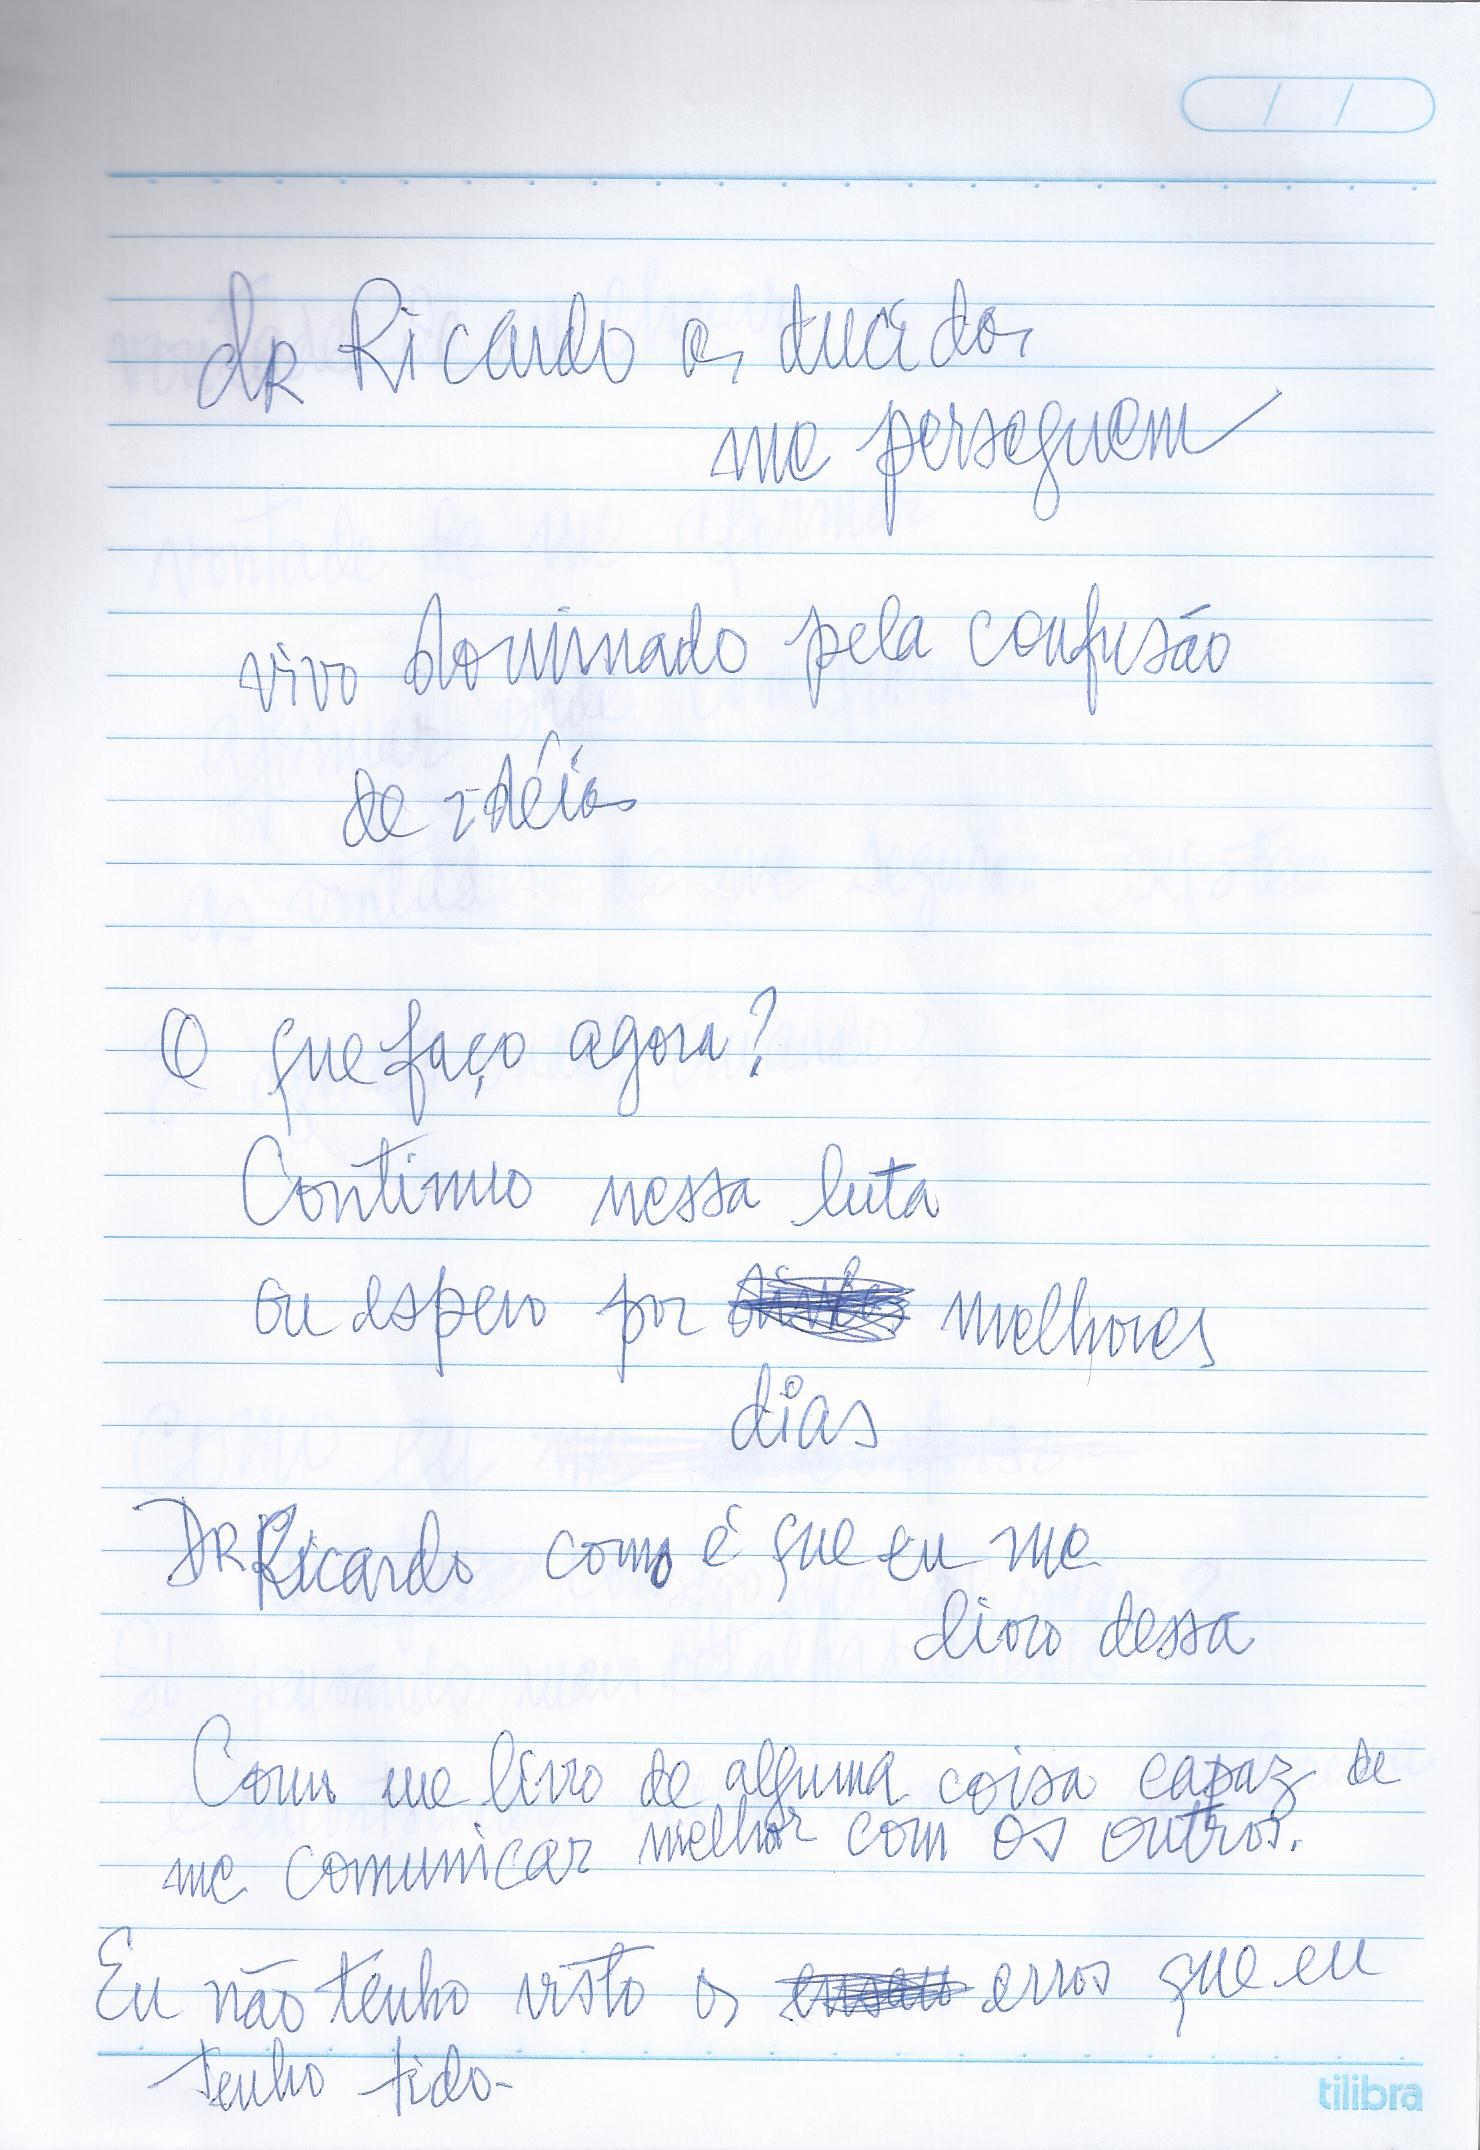 dr Ricardo os
me perseguem
vivo dominado pela confusão
de idéias
O que faço agora?
Continuo nessa luta
ou espero por melhores
dias
DR Ricardo como é que eu me
livro dessa
Como me livro de alguma coisa capaz de
me comunicar melhor com os outros.
Eu não tenho visto os erros que eu
tenho tido-
tilibra